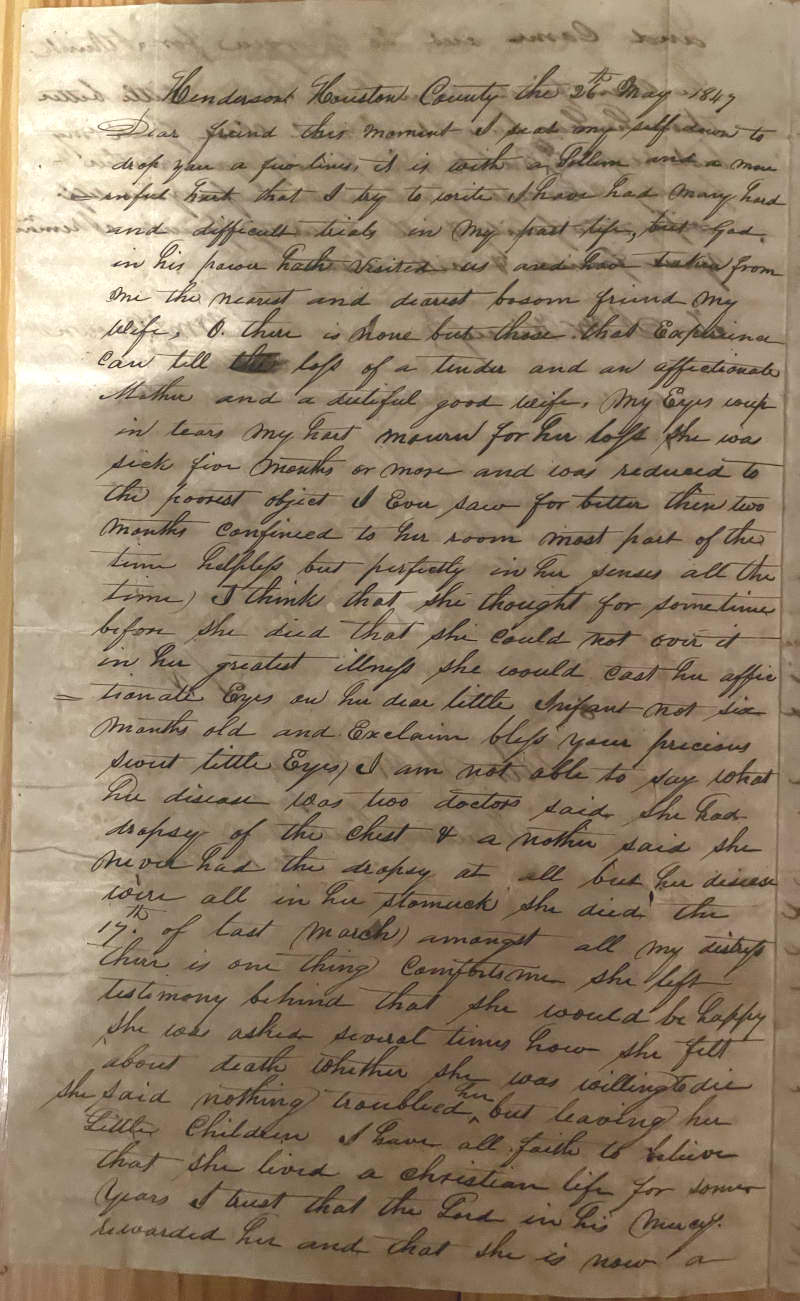 Henderson Houston County the 26th May 1847
Dear friend this moment I seat my self down to
drop you a few lines, it is with a Sollem and a mou
rnful hart that I try to write I have had many hard
and difficult trials in my past life, but God
in his power hath visited us and have taken from
me the nearest and dearest bosom friend my
wife, O. there is none but those that Experience
can tell the loss of a tender and an affectionate
Mother and a dutiful good wife, My Eyes weep
in tears my hart mourn for her loss She was
sick five months or more and was reduced to
the poorest object I Ever saw for better then two
months confined to her room most part of the
time helpless but perfectly in her senses all the
time) I think that she thought for sometime
before she died that she could not over it
in her greatest illness she would cast her affec
tionate Eyes on her dear little Infant not six
months old and Exclaim bless your precious
sweet little Eyes) I am not able to say what
her disease was two doctors said she had
dropsy of the chest & a nother said she
never had the dropsy at all but her disease
were all in her stomuck she died the
17th. of last March) amongst all my distress
there is one thing) comforts me she left
testimony behind that she would be happy
She was asked several times how she felt
about death whether she was willing to die
she said nothing troubled her but leaving her
Little Children I have all faith to believe
that she lived a christian life for some
years I trust that the Lord in his Mercy
rewarded her and that she is now a